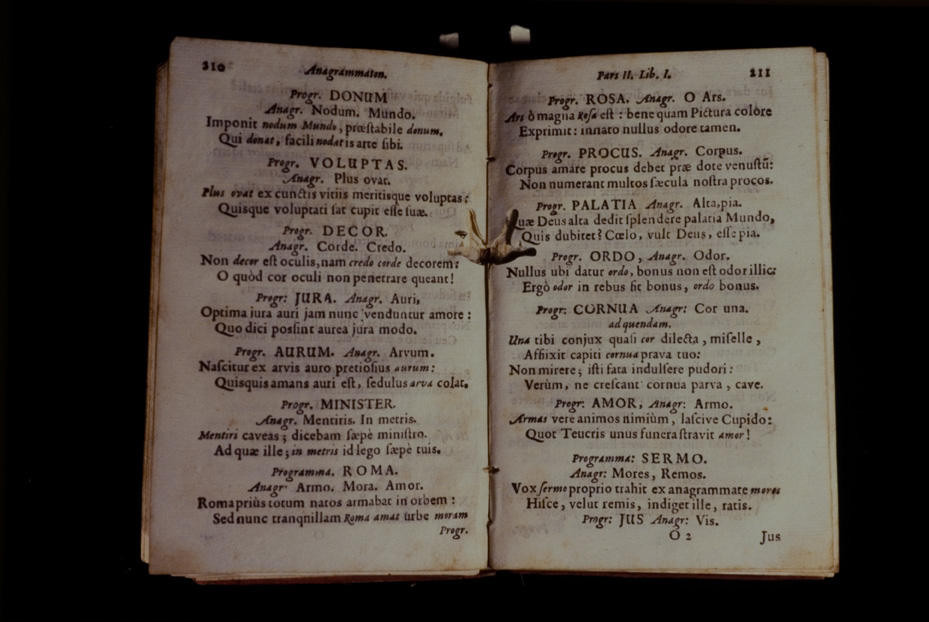 210
Anagrammaton.
Progr. DONUM
Anagr. Nodum. Mundo.
Imponit nodum Mundo, præstabile donum,
Qui donat, facili nodat is arte sibi.
Progr. VOLUPTAS.
Anagr. Plus ovat.
Plus ovat ex cunctis vitiis meritisque voluptas:
Quisque voluptati sat cupit esse suæ.
Progr. DECOR.
Anagr. Corde. Credo.
Non decor est oculis, nam credo corde decorem:
O quòd cor oculi non penetrare queant!
Progr: JURA. Anagr. Auri,
Optima jura auri jam nunc venduntur amore:
Quo dici possint aurea jura modo.
Progr. AURUM. Anagr. Arvum.
Nascitur ex arvis auro pretiosius aurum:
Quisquis amans auri est, sedulus arva colat.
Progr. MINISTER.
Anagr. Mentiris. In metris.
Mentiri caveas; dicebam sæpè ministro.
Ad quæ ille; in metris id lego sæpè tuis.
Programma. ROMA.
Anagr. Armo. Mora. Amor.
Roma priùs totum natos armabat in orbem:
Sed nunc tranquillam Roma amat urbe moram
Progr.
Pars II. Lib. I.
211
Progr. ROSA. Anagr. O Ars.
Ars ò magna Rosa est: bene quam Pictura colòre
Exprimit: innato nullus odore tamen.
Progr. PROCUS. Anagr. Corpus.
Corpus amare procus debet præ dote venustũ:
Non numerant multos sæcula nostra procos.
Progr. PALATIA Anagr. Alta, pia.
uæ Deus alta dedit splendere palatia Mundo,
Quis dubitet? Cœlo, vult Deus, esse pia.
Progr. ORDO, Anagr. Odor.
Nullus ubi datur ordo, bonus non est odor illic:
Ergò odor in rebus sit bonus, ordo bonus.
Progr: CORNUA Anagr: Cor una.
ad quendam.
Una tibi conjux quasi cor dilecta, miselle,
Affixit capiti cornua prava tuo:
Non mirere; isti fata indulsere pudori:
Verùm, ne crescant cornua parva, cave.
Progr: AMOR, Anagr: Armo.
Armas vere animos nimiùm, lascive Cupido:
Quot Teucris unus funera stravit amor!
Programma: SERMO.
Anagr: Mores, Remos.
Vox sermo proprio trahit ex anagrammate mores
Hisce, velut remis, indiget ille, ratis.
Progr: JUS Anagr: Vis.
O 2
Jus